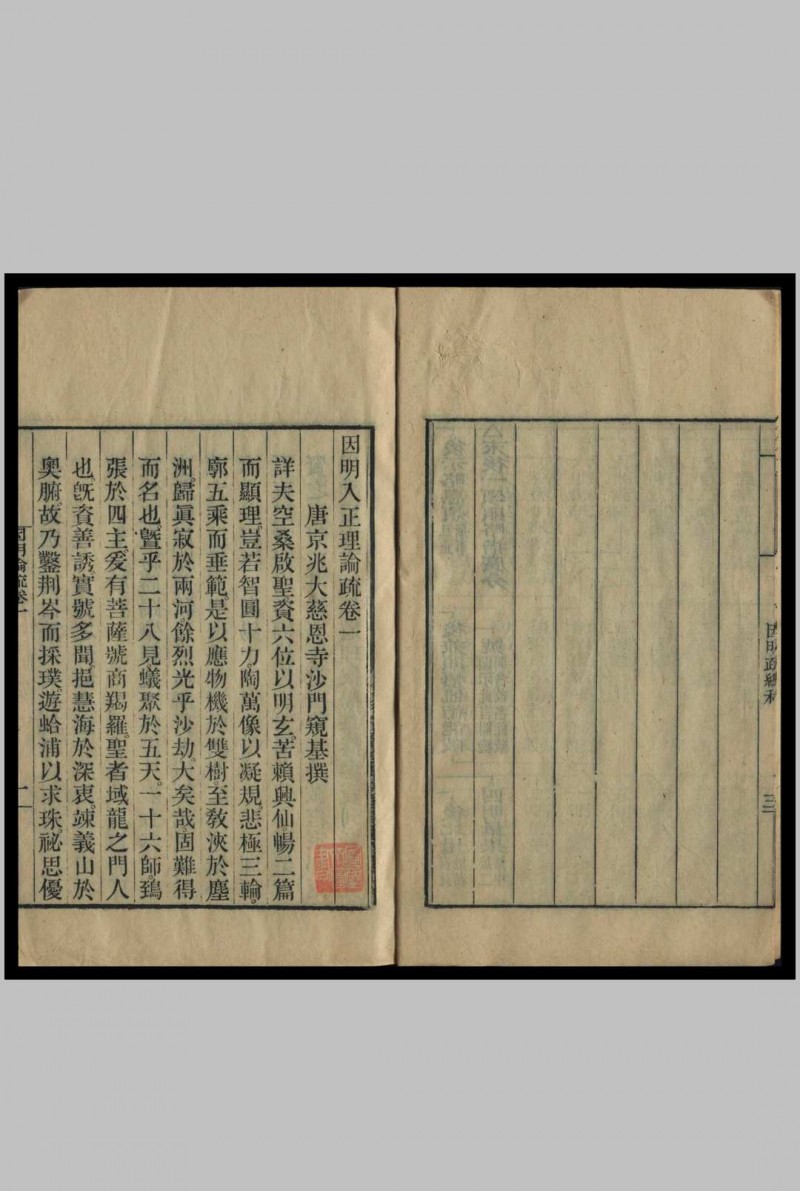 因明入正理論疏卷一
唐京兆大慈恩寺沙門窺基撰
詳夫空桑啟聖資六位以明玄苦賴興仙暢二篇
而顯理豈若智圓十力陶萬像以凝規悲極三輪
廓五乘而垂範是以應物機於雙樹至教浹於塵
洲歸眞寂於兩河餘烈光乎沙劫大矣哉固難得
而名也曁乎二十八見蟻聚於五天一十六師鵄
張於四主爰有菩薩號商羯羅聖者域龍之門人
也旣資善誘實號多聞挹慧海於深衷竦義山於
奧腑故乃鑿荆岑而採璞遊蛤浦以求珠祕思優
因明論疏卷一
一
三